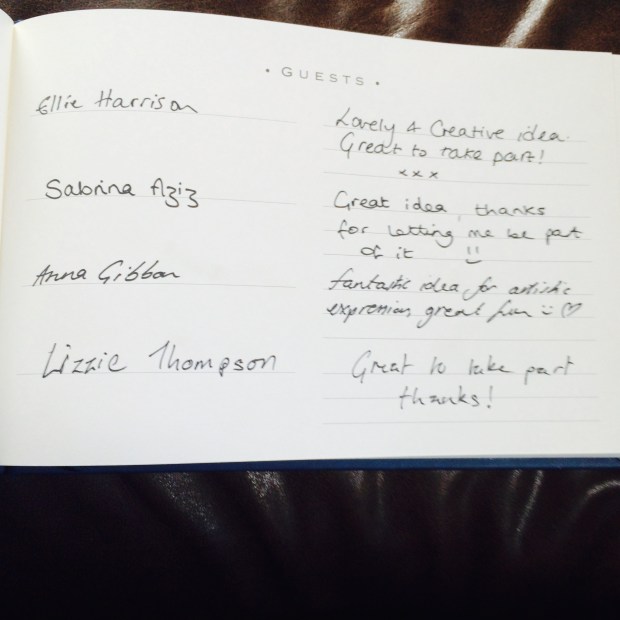 • GUESTS •
Ellie Harrison
Lovely & Creative idea.
Great to take part!
x x x
Sabrina Aziz
Great idea, thanks
for letting me be part
of it
Anna Gibbon
fantastic idea for artistic
expression great fun
Lizzie Thompson
Great to take part
thanks!